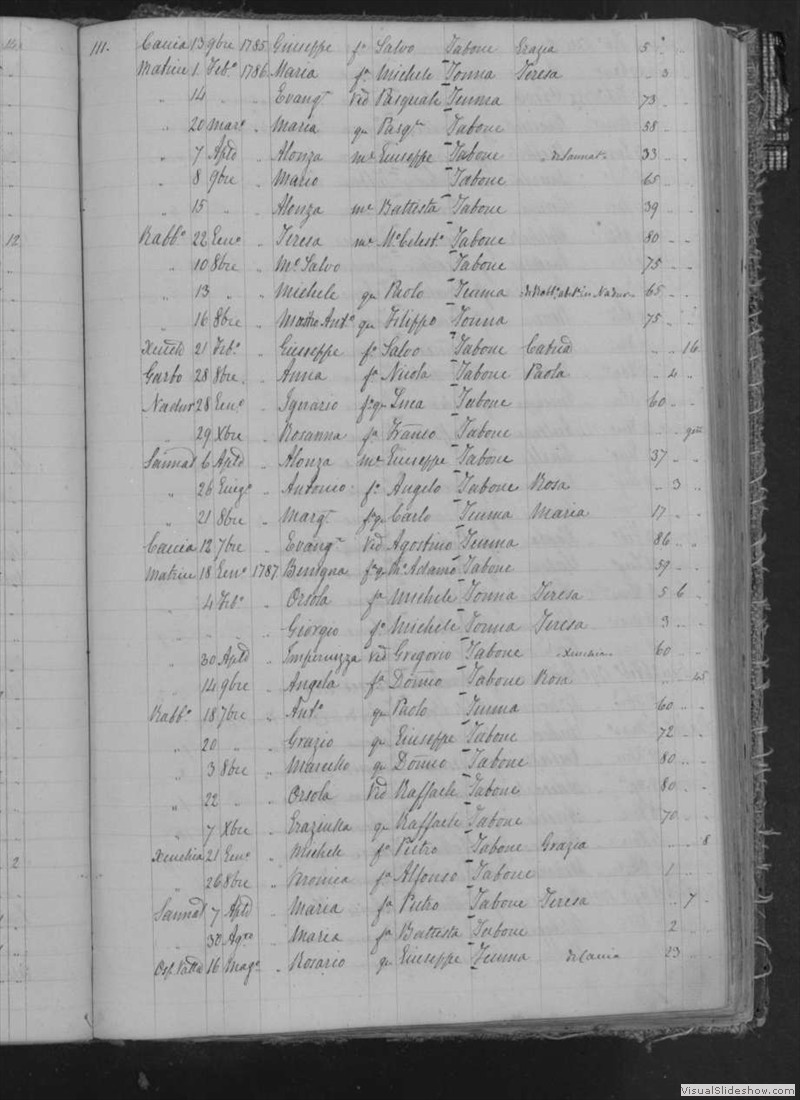 111. Caccia 13 9bre 1785 Giuseppe fo Salvo Tabone Grazia 5 " "
Matrice 1 Febo 1786 Maria fa Michele Tonna Teresa " 3
" 14 " " Evangta Ved Pasquale Temma 73
" 20 Marzo " Maria qm Pasqle Tabone 58
" 7 Aple " Alonza me Giuseppe Tabone di Sannat 33
" 8 9bre " Mario Tabone 65
" 15 " " Alonza me Battista Tabone 39
Rabbo 22 Geno " Teresa me Mo Celesto Tabone 80
" 10 8bre " Mo Salvo Tabone 75
" 13 " " Michele qm Paolo Temma 65
" 16 8bre " Mastro Anto qm Filippo Tonna 75
21 Febo " Giuseppe fo Salvo Tabone 16
Garbo 28 8bre " Anna fa Nicola Tabone Paola " 4
Nadur 28 Geno " Ignazio fo qm Luca Tabone 60
" 29 Xbre " Rosanna fa Franco Tabone
Sannat 6 Aple " Alonza me Giuseppe Tabone 37
" 26 Giugo " Antonio fo Angelo Tabone Rosa " 3
" 21 8bre " Margta fa qm Carlo Temma Maria 17
Caccia 12 7bre " Evangta Ved Agostino Temma 86
Matrice 18 Geno 1787 Benigna fa qm Mo Adamo Tabone 59
" 4 Febo " Orsola fa Michele Tonna Teresa 5 6
" " " Giorgio fo Michele Tonna Teresa 3
" 30 Aple " Imperuzza Ved Gregorio Tabone Xeuchia 60
" 14 9bre " Angela fa Domco Tabone Rosa 45
Rabbo 18 7bre " Anto qm Paolo Temma 60
" 20 " " Grazio qm Giuseppe Tabone 72
" 3 8bre " Marcello qm Domco Tabone 80
" 22 " " Orsola Ved Raffaele Tabone 80
" 7 Xbre " Graziulla qm Raffaele Tabone 70
Xeuchia 21 Geno " Michele fo Pietro Tabone Grazia 8
" 26 8bre " Veronica fa Alfonso Tabone 1
Sannat 7 Aple " Maria fa Pietro Tabone Teresa " 7
" 30 Agto " Maria fa Battista Tabone 2
16 Mago " Rosario qm Giuseppe Temma di Caccia 23
12
2
VisualSlideshow.com